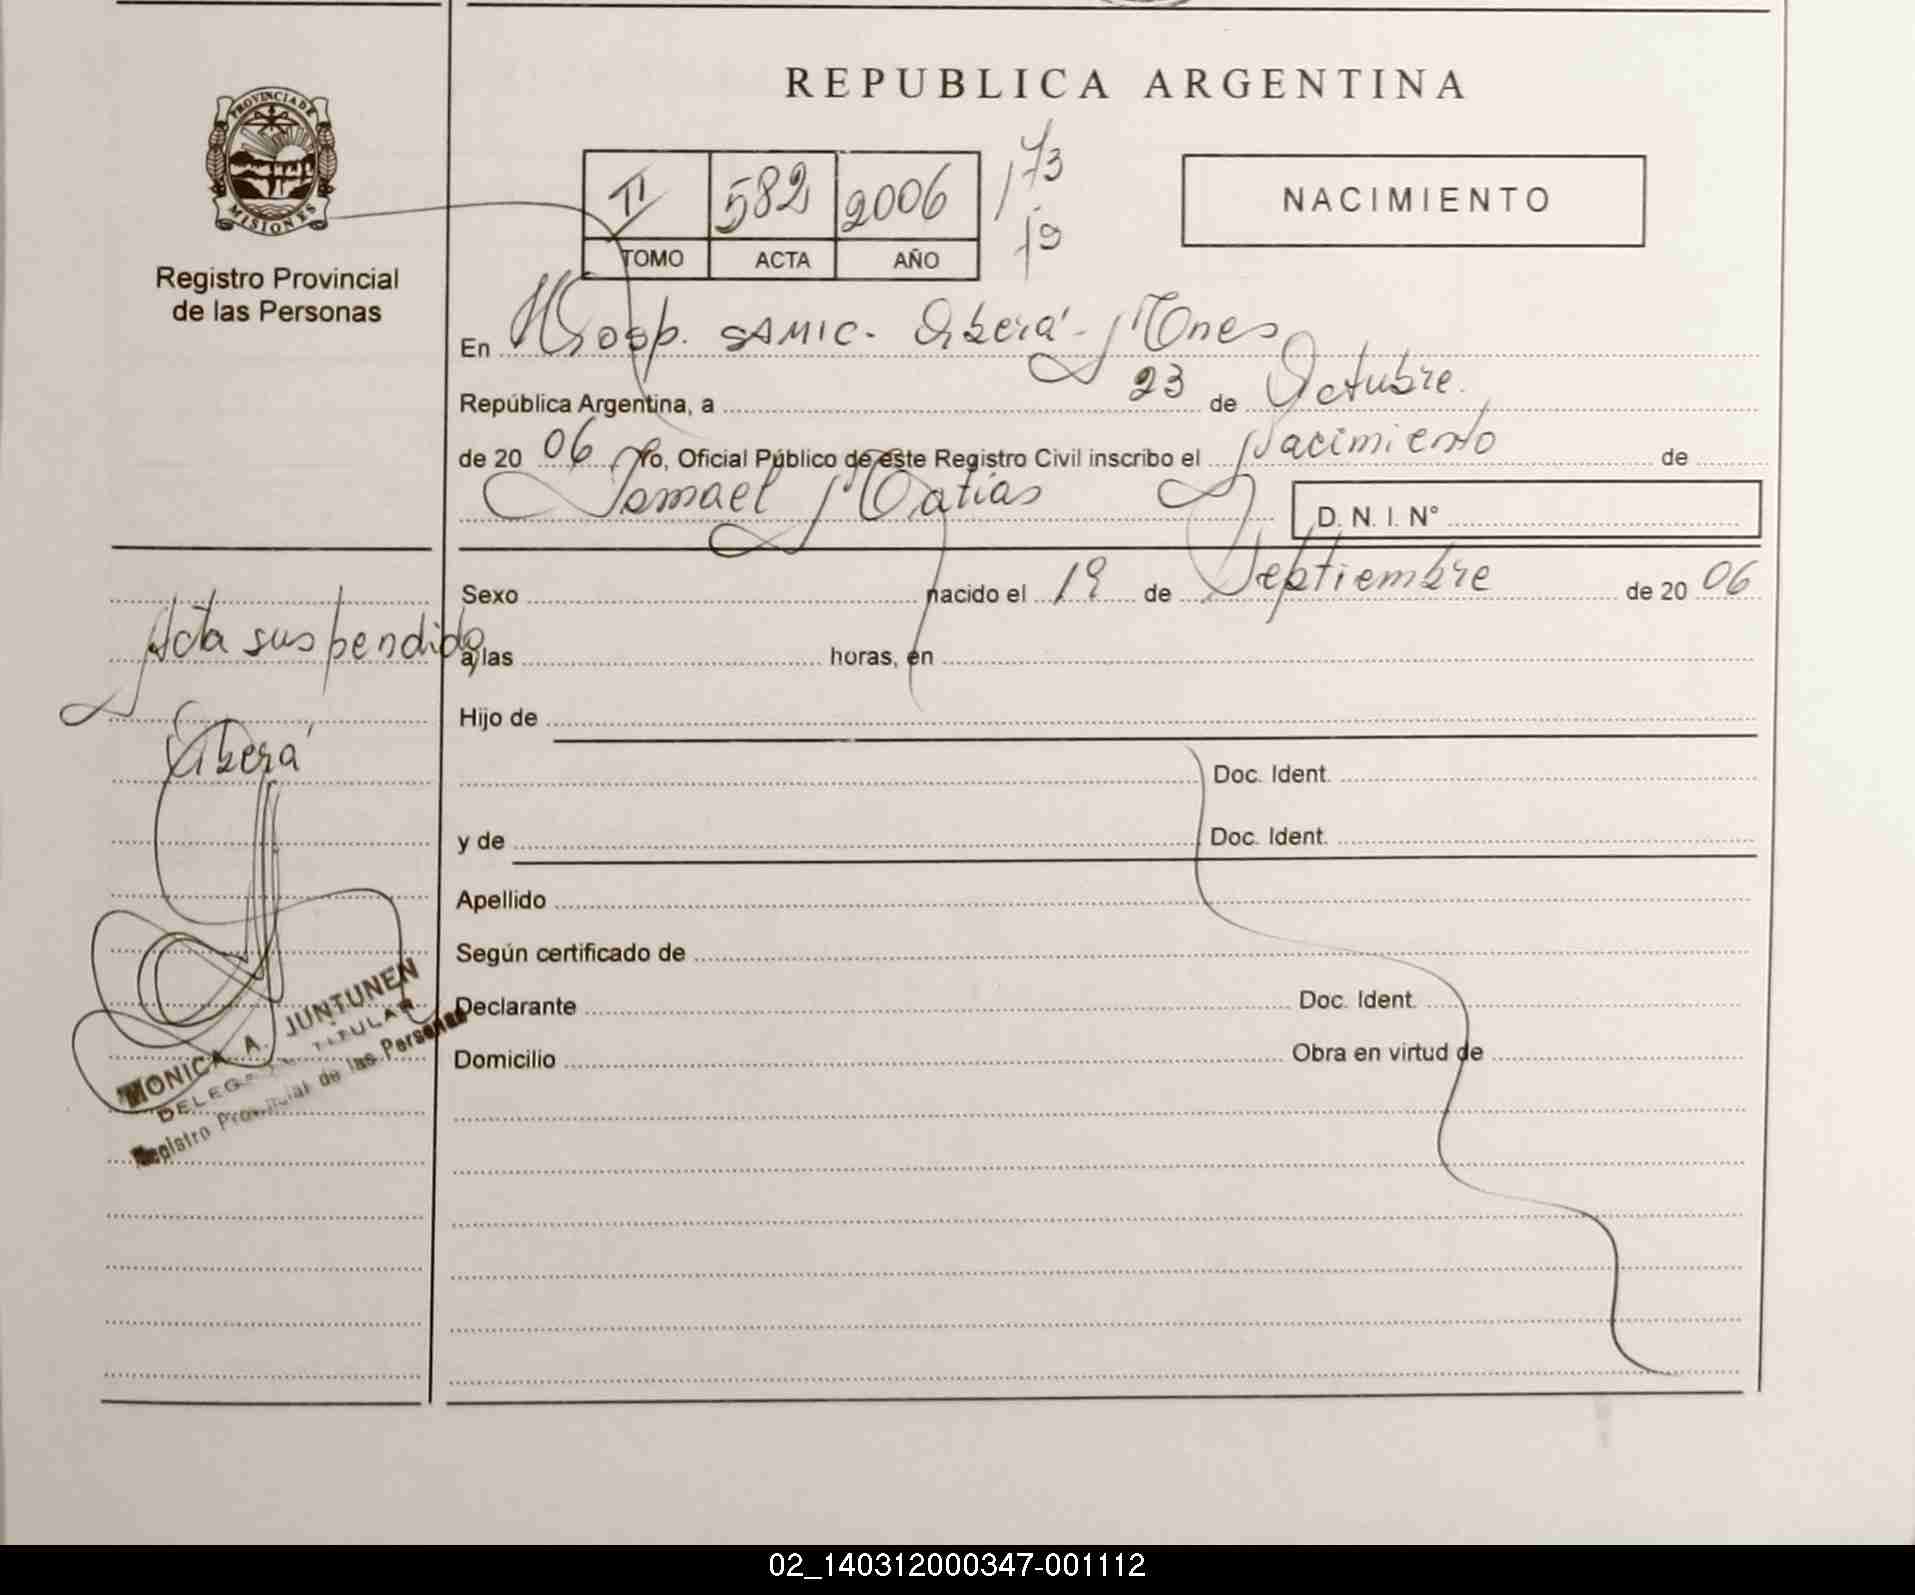 REPUBLICA ARGENTINA
PROVINCIA DE
MISIONES
Registro Provincial
de las Personas
II 582 2006
TOMO ACTA AÑO
173
19
NACIMIENTO
En Hosp. SAMIC. Oberá - Mnes
República Argentina, a 23 de Octubre.
de 20 06 Yo, Oficial Público de este Registro Civil inscribo el Nacimiento de
Ismael Matias D. N. I. N°
Sexo nacido el 19 de Septiembre de 20 06
a las horas, en
Hijo de
Doc. Ident.
y de Doc. Ident.
Apellido
Según certificado de
Declarante Doc. Ident.
Domicilio Obra en virtud de
Acta suspendida
Oberá
MONICA A. JUNTUNEN
DELEGADA TITULAR
Registro Provincial de las Personas
02_140312000347-001112